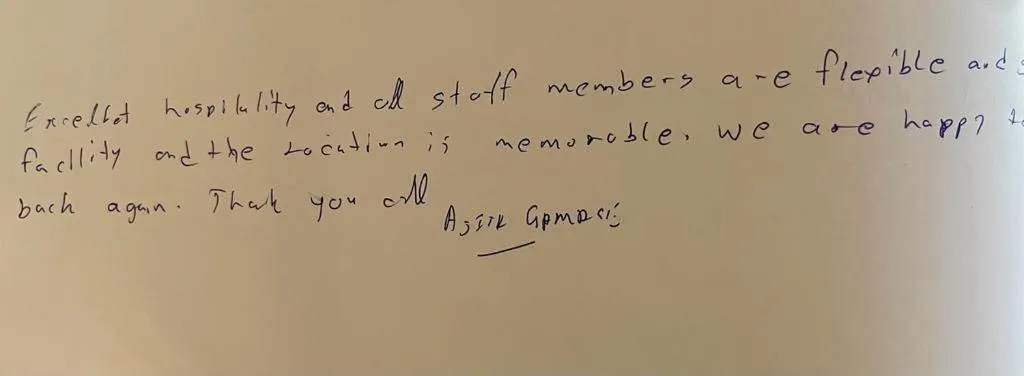 Excellet hospitality and all staff members are flexible and
facllity and the Location is memorable. we are happy to
back again. Thak you all